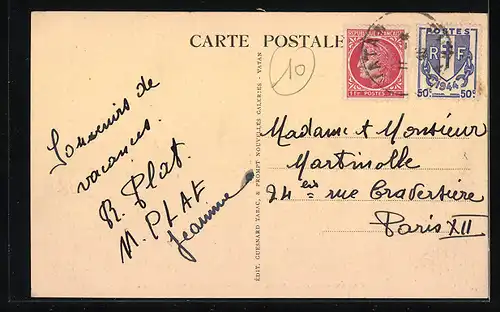 CARTE POSTALE
10
REPUBLIQUE FRANCAISE
POSTES
POSTES
R F
1944
50c 50c
VATAN
Souvenirs de
vacances.
R. Plat.
M. PLAT
Jeanne
EDIT. GUESNARD TABAC, & PROMPT NOUVELLES GALERIES - VATAN
Madame et Monsieur
Martinolle
24 bis rue Traversière
Paris XII